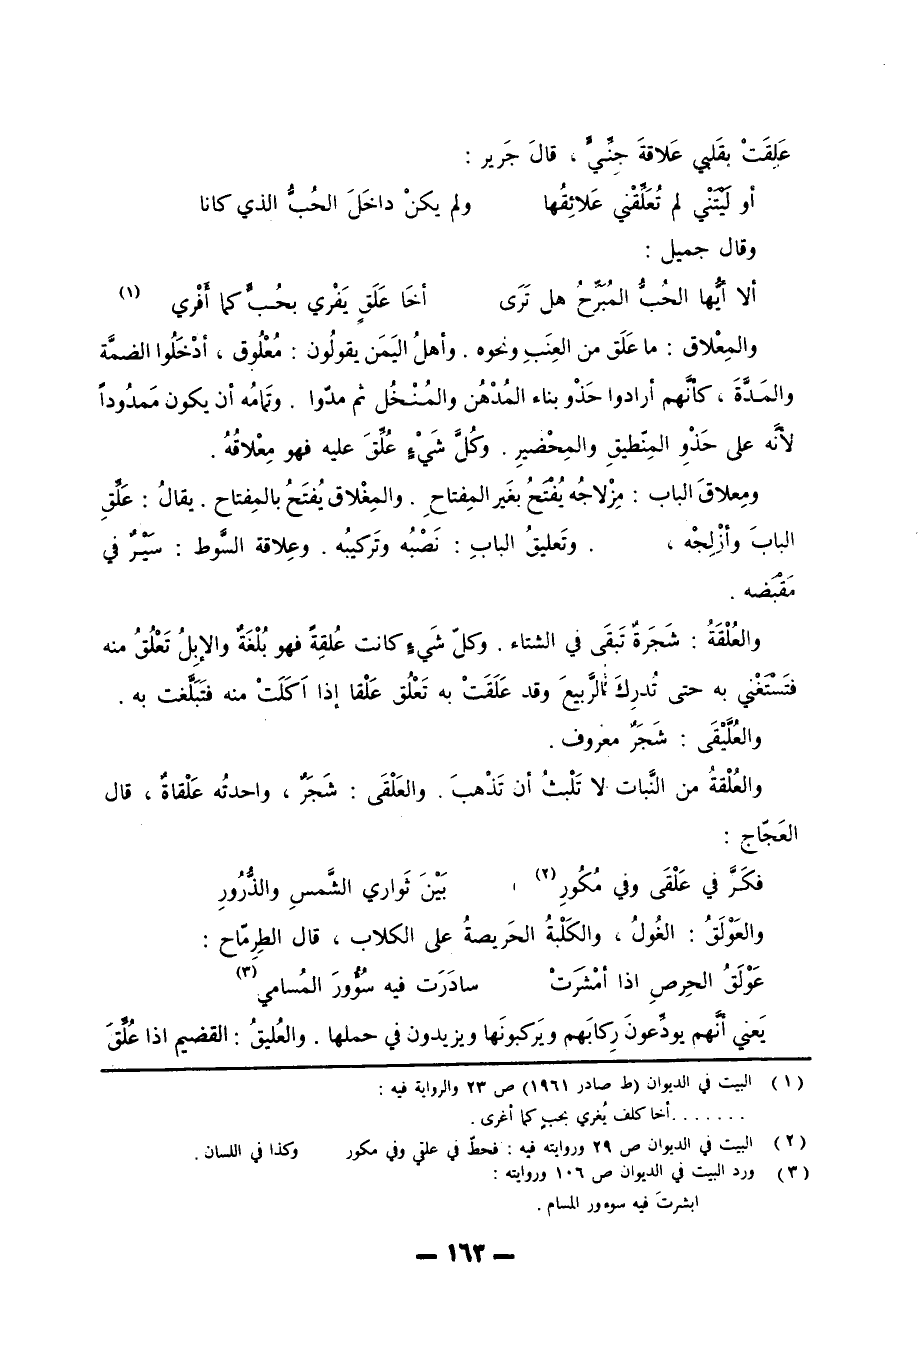 عَلِقَتْ بقَلبي عَلاقةَ جِنِّيٍّ ، قالَ جَرير :
أو لَيْتَنْي لم تُعَلِّقْني عَلائِقُها ولم يكنْ داخَلَ الحُبُّ الذي كانا
وقال جميل :
ألا أيُّها الحُبُّ المُبَرِّحُ هل تَرَى أخَا عَلَقٍ يَفْري بحُبٍّ كما أَفْري (١)
والمِعْلاق : ما عَلَق من العِنَبِ ونحوه . وأهلُ اليَمَن يقولُون : مُعْلُوق ، أدْخَلُوا الضمَّة
والمَدَّةَ ، كأنَّهم أرادوا حَذْو بناء المُدْهُن والمُنْخُل ثم مدّوا . وتَمامُه أن يكون مَمدُوداً
لأنَّه على حَذْوِ المِنْطيقِ والمِحْضيرِ . وكُلَّ شَيْءٍ عُلِّقَ عليه فهو مِعْلاقُهُ .
ومِعلاقَ الباب : مِزْلاجُه يُفْتَحُ بغَير المفتاحِ . والمِغْلاق يُفتَحُ بالمِفتاح . يقالُ : عَلِّقِ
البابَ وأزْلِجْه ، . وتَعليقُ البابِ : نَصْبُه وتَركيبُه . وعِلاقة السَّوط : سَيْرٌ في
مَقْبَضه .
والعُلْقَةُ : شَجَرةٌ تَبقَى في الشتاء . وكلّ شَيءٍ كانت عُلقةً فهو بُلْغَةٌ والإبِلُ تَعْلُقُ منه
فتَسْتَغْني به حتى تُدرِكَ الرَّبيعَ وقد عَلَقَتْ به تَعْلُق عَلْقا إذا اَكَلَتْ منه فتَبَلَّغت به .
والعُلَّيْقَى : شَجَرٌ معروف .
والعُلْقةُ من النَّبات لا تَلْبثُ أن تَذْهبَ . والعَلْقَى : شَجَرٌ ، واحدتُه عَلْقاةٌ ، قال
العَجّاج :
فكَرَّ في عَلْقَى وفي مُكُورِ (٢) بَيْنَ ثَواري الشَّمسِ والذُّرُورِ
والعَوْلَقُ : الغُولُ ، والكَلْبةُ الحَريصةُ على الكلاب ، قال الطِرِمّاح :
عَوْلَقُ الحِرصِ اذا أمْشَرَتْ سادَرَت فيه سُؤُورَ المُسامي (٣)
يَعني أنَّهم يودِّعونَ رِكابَهم ويَركبونَها ويزيدون في حملها . والعُليقُ : القضيم اذا عُلِّقَ
(١) البيت في الديوان (ط صادر ١٩٦١) ص ٢٣ والرواية فيه :
. . . . . . . أخا كلف يُغري بحبٍ كما أغرى .
(٢) البيت في الديوان ص ٢٩ وروايته فيه : فحطّ في علقى وفي مكور وكذا في اللسان .
(٣) ورد البيت في الديوان ص ١٠٦ وروايته :
ابشرتَ فيه سوءور المسام .
— ١٦٣ —